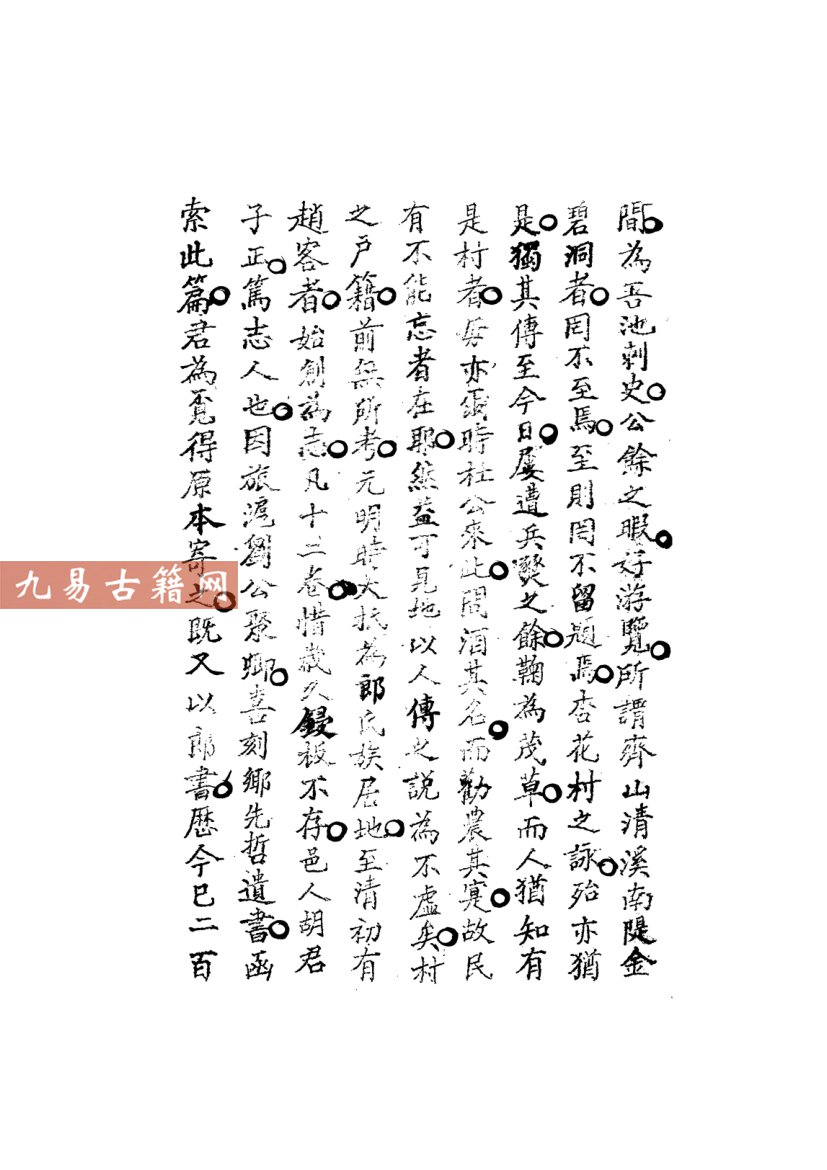 間為吾池刺史公餘之暇好游覽所謂齊山清溪南隄金
碧洞者罔不至焉至則罔不留題焉杏花村之詠殆亦猶
是獨其傳至今日屢遭兵燹之餘鞠為茂草而人猶知有
是村者毋亦須時杜公來此間酒其名而勸農其寔故民
有不能忘者在耶然益可見地以人傳之說為不虛矣村
之戶籍前無所考元明時大抵為郎氏族居地至清初有
趙客者始創為志凡十二卷惜歲久鋟板不存邑人胡君
子正篤志人也因旅滬劉公聚卿喜刻鄉先哲遺書函
索此篇君為覓得原本寄之既又以郎書歷今已二百
九易古籍网